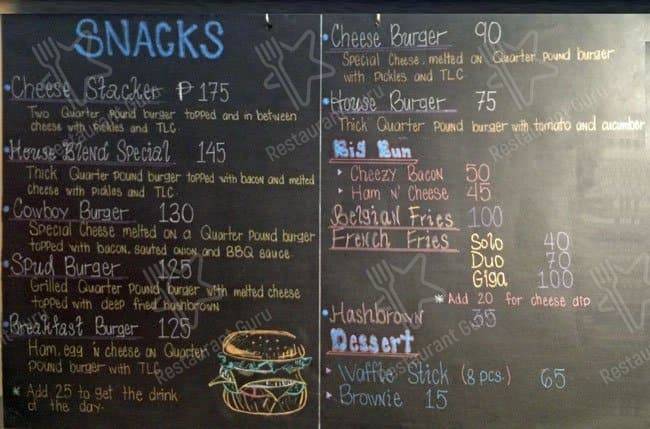 SNACKS
Cheese Stacker ₱175
Two Quarter Pound burger topped and in between
cheese with pickles and TLC
House Blend Special 145
Thick Quarter Pound burger topped with bacon and melted
cheese with pickles and TLC
Cowboy Burger 130
Special Cheese melted on a Quarter Pound burger
topped with bacon, sauted onion and BBQ sauce
Spud Burger 125
Grilled Quarter pound burger with melted cheese
topped with deep fried hashbrown
Breakfast Burger 125
Ham, egg 'n cheese on Quarter
pound burger with TLC
* Add 25 to get the drink
of the day.
Cheese Burger 90
Special Cheese, melted on Quarter Pound burger
with pickles and TLC
House Burger 75
Thick Quarter Pound burger with tomato and cucumber
Big Bun
Cheezy Bacon 50
Ham N' Cheese 45
Belgian Fries 100
French Fries Solo 40
Duo 70
Giga 100
* Add 20 for cheese dip
Hashbrown 35
Dessert
Waffle Stick (8 pcs.) 65
Brownie 15
Restaurant Guru
Restaurant Guru
Restaurant Guru
Restaurant Guru
Restaurant Guru
Restaurant Guru